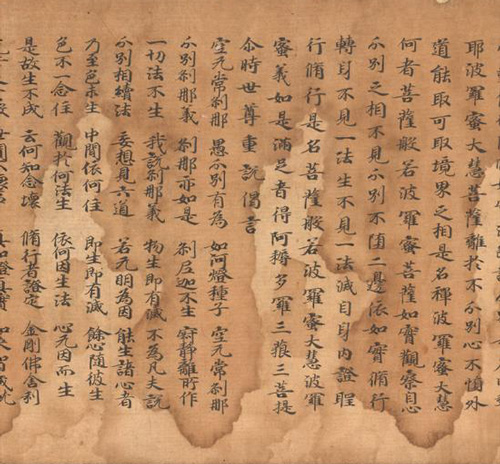 耶波羅蜜大慧菩薩離於不分別心不墮外
道能取可取境界之相是名禪波羅蜜大慧
何者菩薩般若波羅蜜菩薩如實觀察自心
分別之相不見分別不墮二邊依如實脩行
轉身不見一法生不見一法滅自身内證聖
行脩行是名菩薩般若波羅蜜大慧波羅
蜜義如是滿足者得阿耨多羅三藐三菩提
尒時世尊重說偈言
空无常剎那 愚分別有為 如河燈種子 空无常剎那
分別剎那義 剎那亦如是 剎尼迦不生 寂靜離所作
一切法不生 我說剎那義 物生即有滅 不為凡夫說
分別相續法 妄想見六道 若无明為因 能生諸心者
乃至色未生 中間依何住 即生即有滅 餘心隨彼生
色不一念住 觀於何法生 依何因生法 心无因而生
是故生不成 云何知念壞 脩行者證定 金剛佛舍利